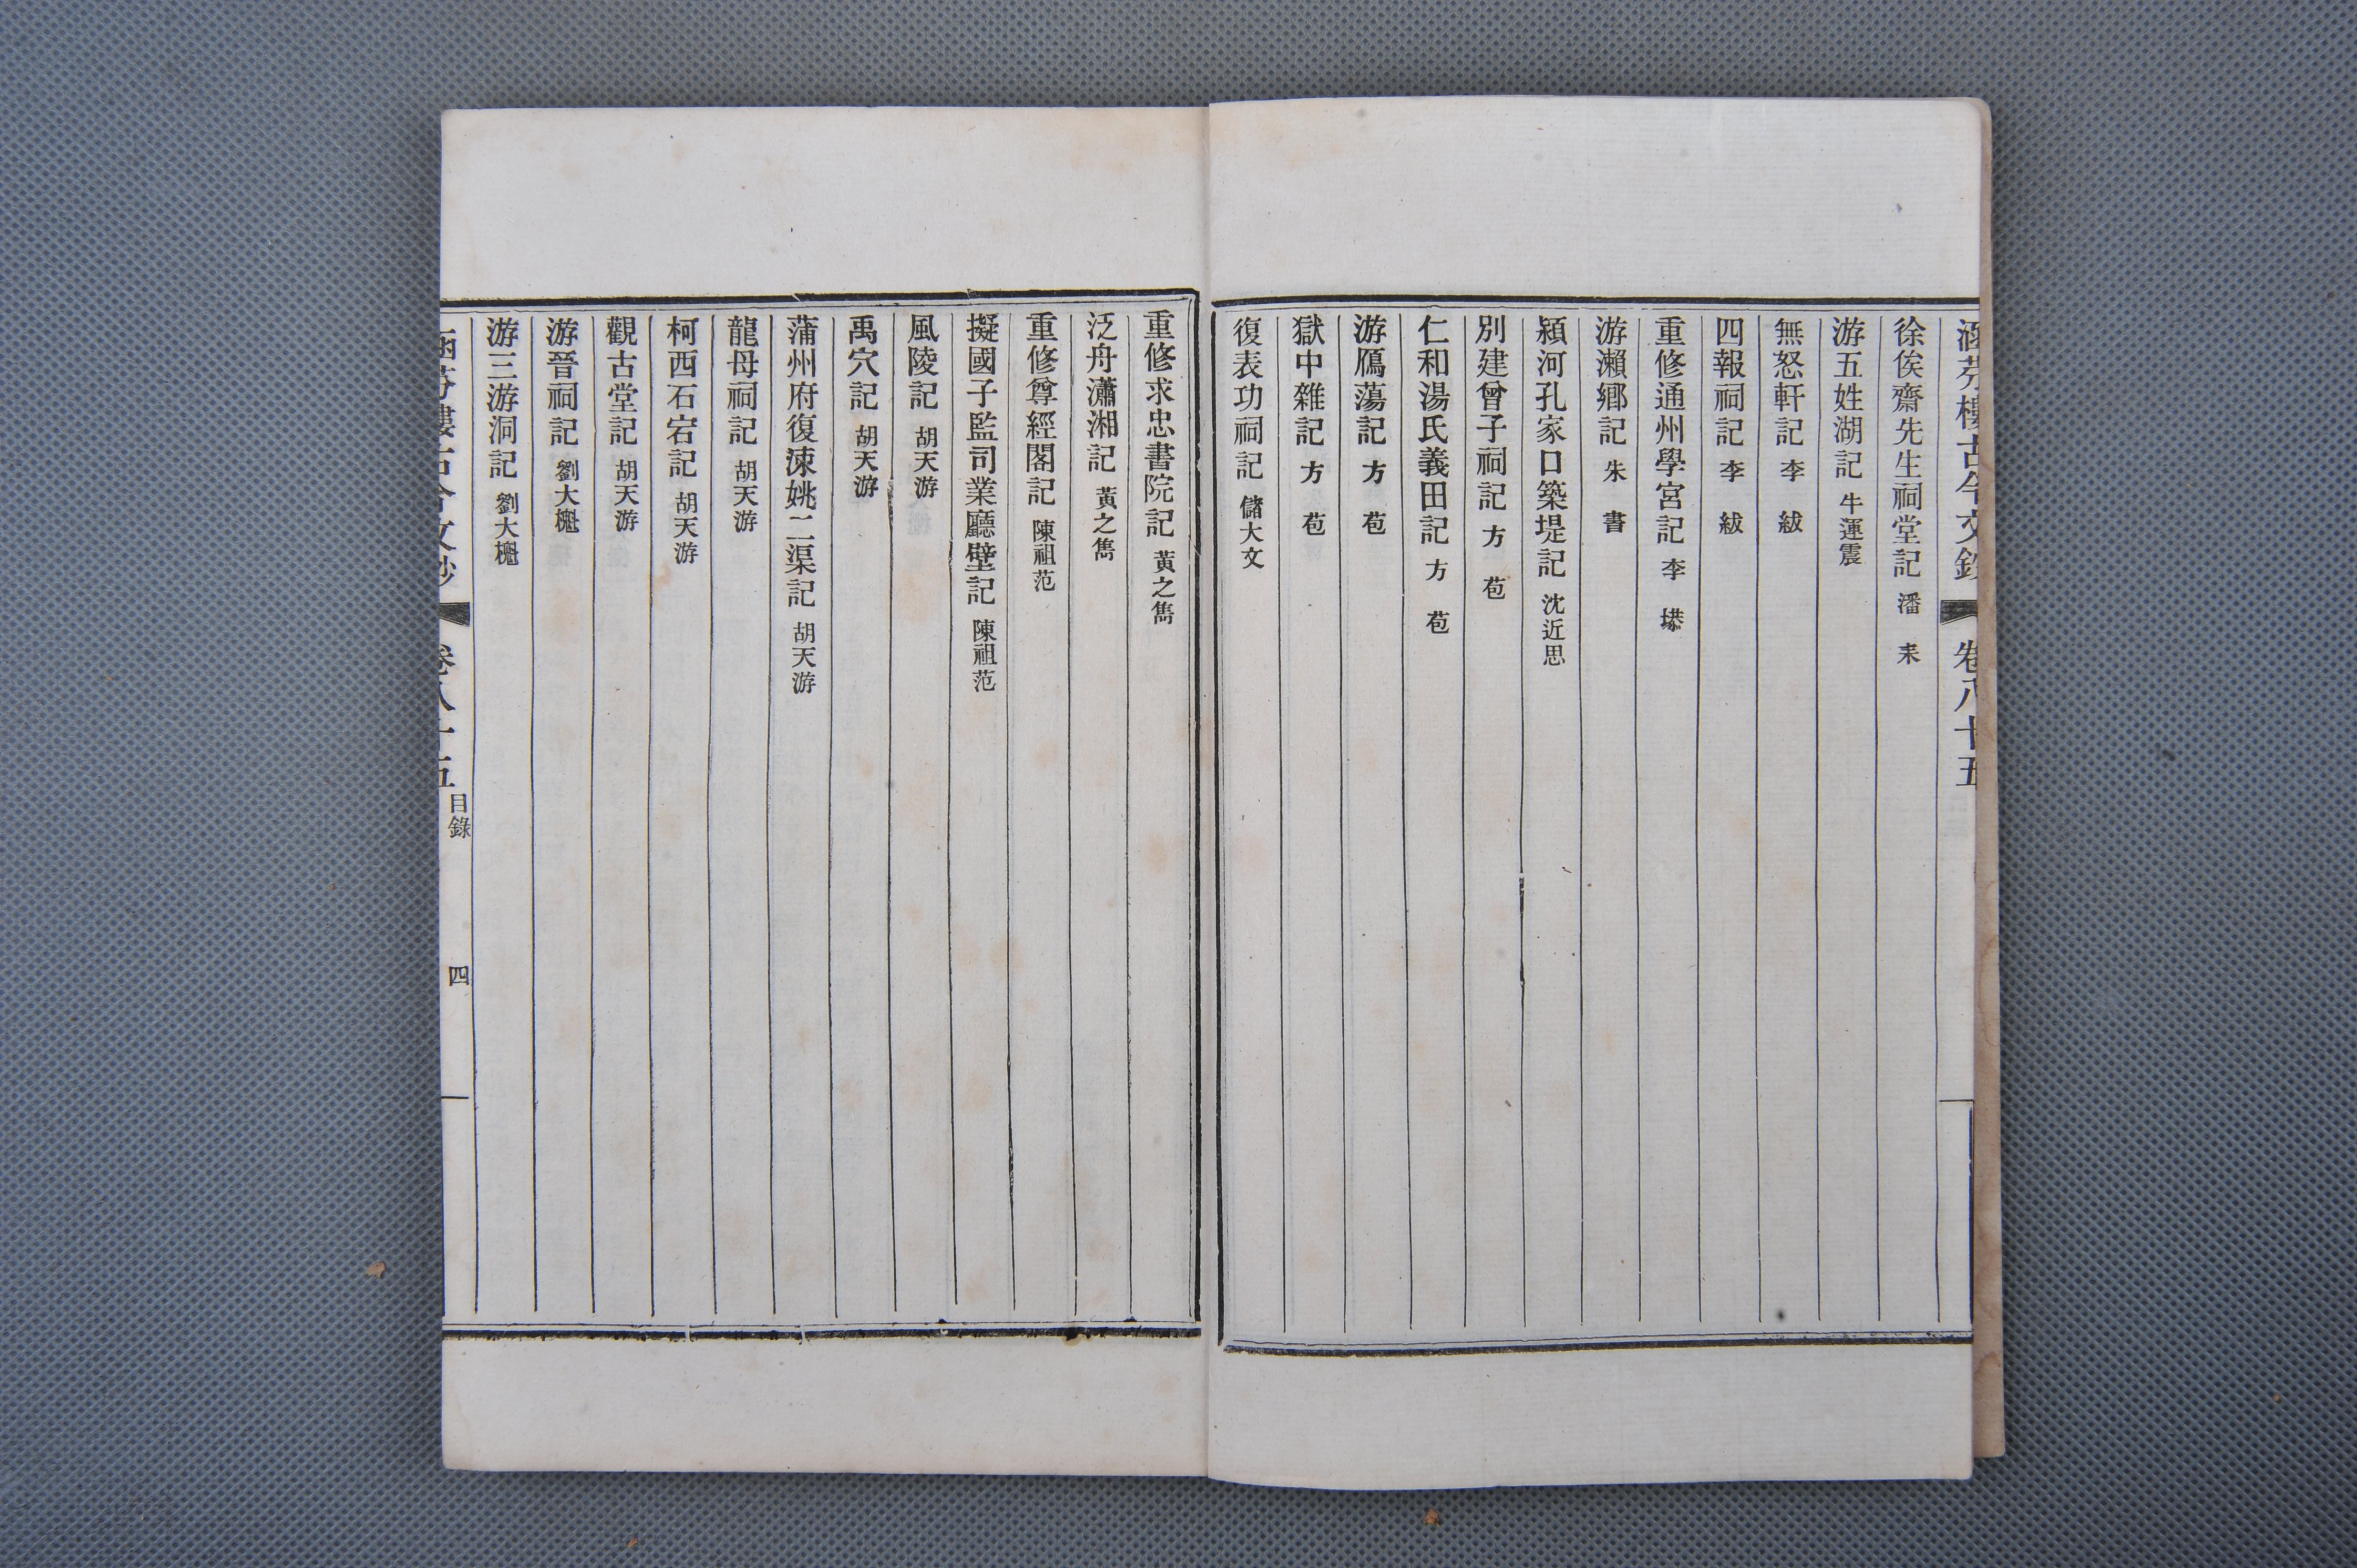 涵芬樓古今文鈔 卷八十五
徐俟齋先生祠堂記 潘 耒
游五姓湖記 牛運震
無怒軒記 李 紱
四報祠記 李 紱
重修通州學宮記 李 塨
游瀨鄉記 朱 書
潁河孔家口築堤記 沈近思
別建曾子祠記 方 苞
仁和湯氏義田記 方 苞
游鴈蕩記 方 苞
獄中雜記 方 苞
復表功祠記 儲大文
重修求忠書院記 黃之雋
泛舟瀟湘記 黃之雋
重修尊經閣記 陳祖范
擬國子監司業廳壁記 陳祖范
風陵記 胡天游
禹穴記 胡天游
蒲州府復涑姚二渠記 胡天游
龍母祠記 胡天游
柯西石宕記 胡天游
觀古堂記 胡天游
游晉祠記 劉大櫆
游三游洞記 劉大櫆
涵芬樓古今文鈔 卷八十五 目錄 四